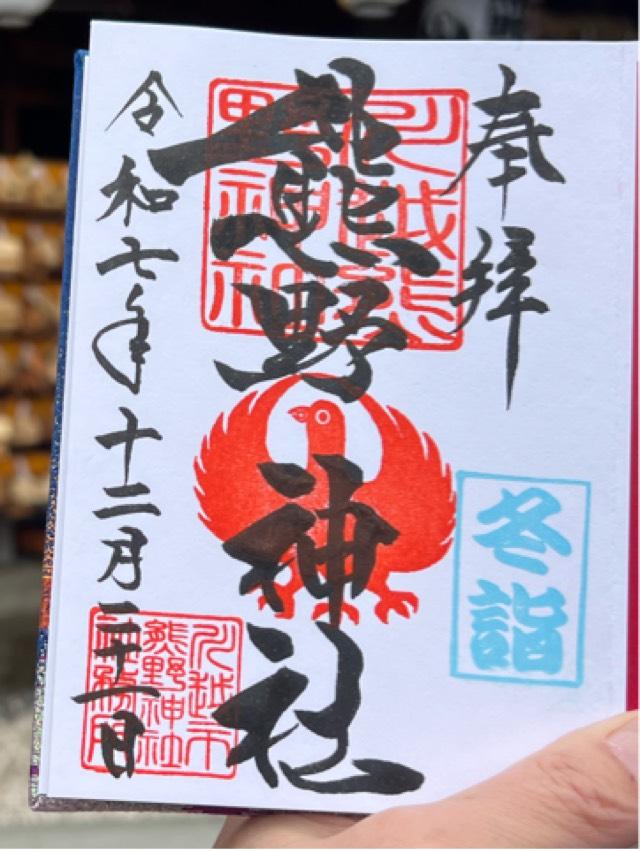 奉拝
冬詣
川越熊
野神社
熊野神社
令和七年十二月二十一日
川越市
熊野神社
社務所